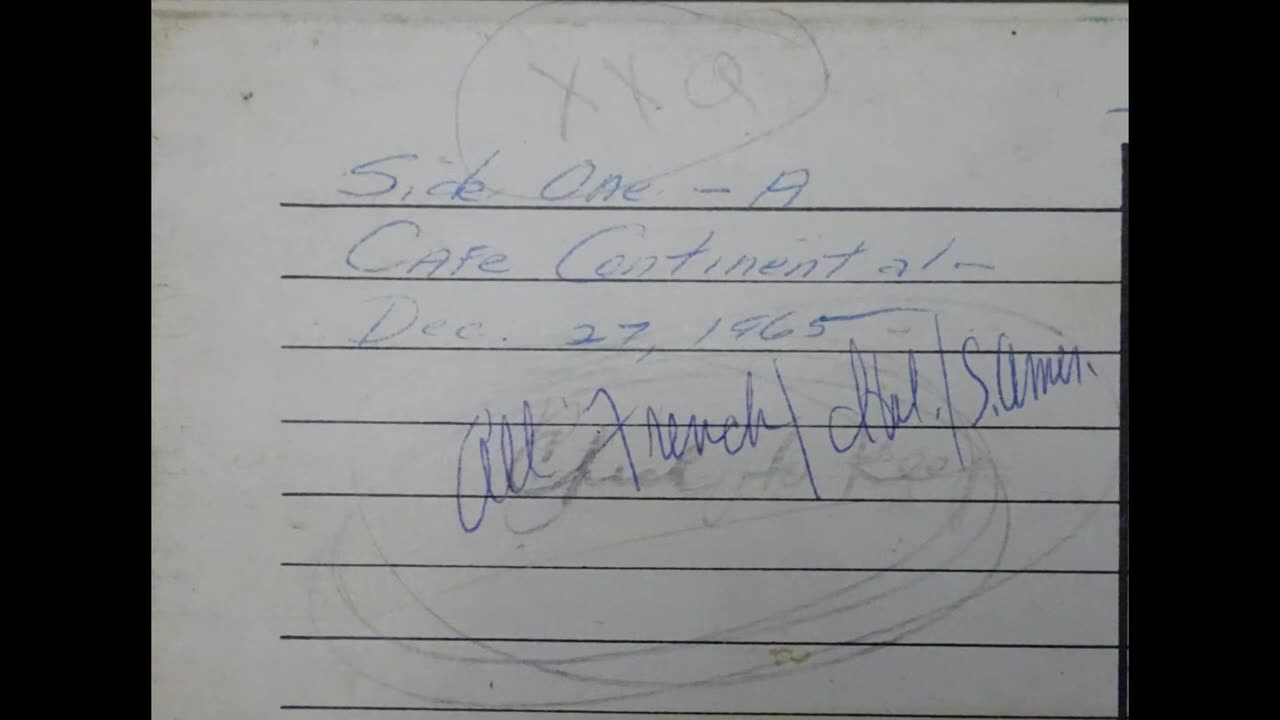 XXQ
Side One - A
CAFE Continental -
Dec. 27, 1965 -
All French / Ital. / S. Amer.